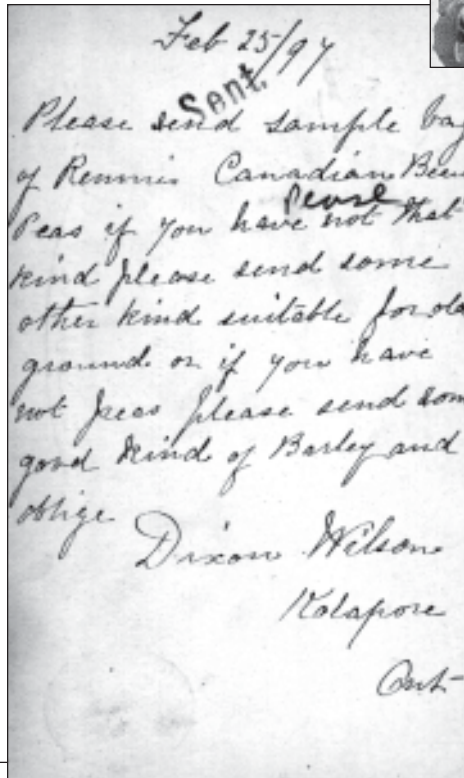 Feb 25/97
Sent.
Please send sample bag
of Rennis Canadian
Pearl
Peas if you have not that
kind please send some
other kind suitable for old
ground or if you have
not peas please send som
good kind of Barley and
oblige
Dixon Wilson
Kolapore
Ont